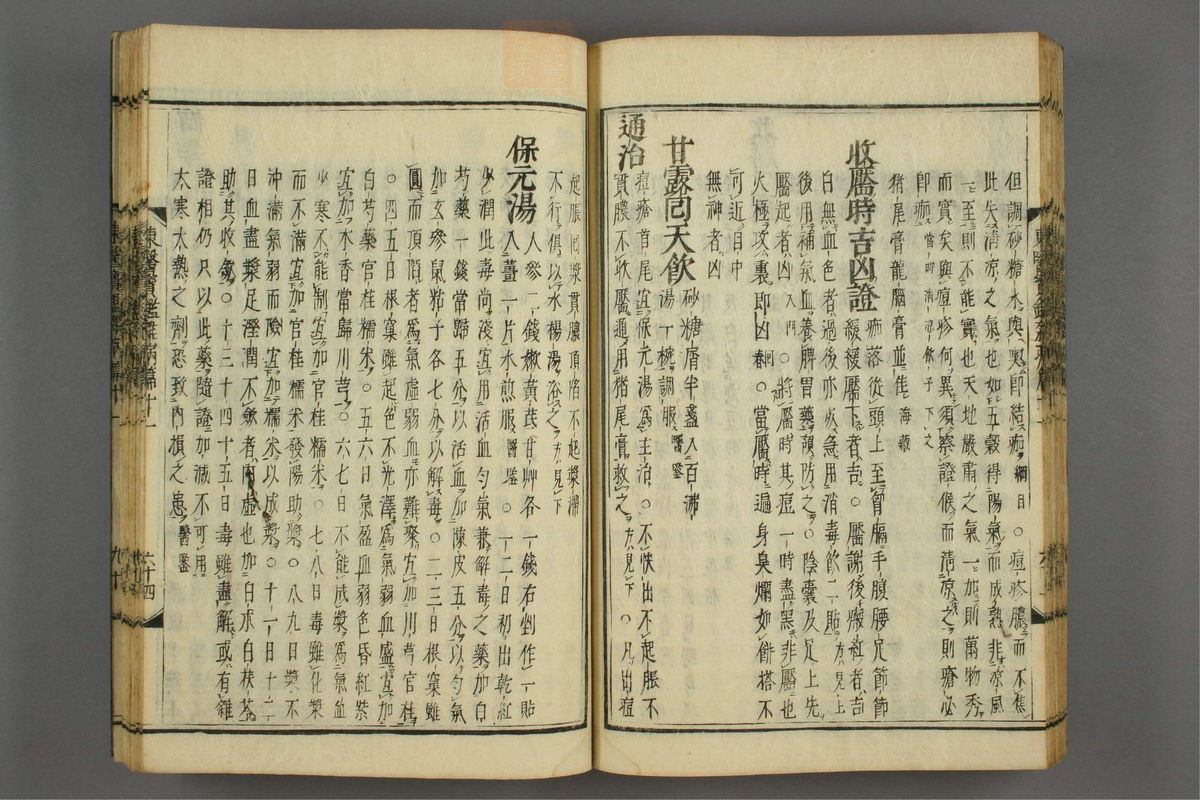 但調砂糖水與喫卽結痂綱目○痘疹膿而不焦
此失淸凉之氣也如五穀得陽氣而成熟非凉風
一至則不能實也天地嚴肅之氣一施則萬物秀
而實矣與痘疹何異須察證候而淸凉之則瘡必
卽痂
猪尾膏龍腦膏並佳海藏
收靨時吉凶證
痂落後從頭上至胷膈手腹腰足節節
緩緩靨下者吉○靨謝後瘢紅者吉
白無血色者過後亦死急用消毒飮二貼方見上
後用補血氣養脾胃藥預防之○陰囊及足上先
靨起者凶入門○將靨時其痘一時盡黑非靨也
火極攻裏卽凶回春○當靨時遍身臭爛如餠搭不
可近目中
無神者凶
甘露回天飮
砂糖屑半盞入百沸
湯一椀調服醫鑑
通治
痘瘡首尾宜保元湯爲主治○不快出不起脹不
貫膿不收靨通用猪尾膏救之方見下○凡出痘
起脹回漿貫膿頂陷不起漿滯
不行俱以水楊湯浴之方見下
保元湯
人參二錢嫩黃芪甘艸各一錢右剉作一貼
入薑一片水煎服醫鑑○一二日初出乾紅
少潤此毒尙淺宜用活血勻氣兼解毒之藥加白
芍藥一錢當歸五分以活血加陳皮五分以勻氣
加玄參鼠粘子各七分以解毒○二三日根窠雖
圓而頂陷者爲氣虛弱血亦難聚宜加川芎官桂
○四五日根窠雖起色不光澤爲氣弱血盛宜加
白芍藥官桂糯米○五六日氣盈血弱色昏紅紫
宜加木香當歸川芎○六七日不能成漿爲氣血
少寒不能制宜加官桂糯米○七八日毒雖化漿
而不滿宜加官桂糯米發陽助漿○八九日漿不
沖滿氣弱而險宜加糯米以成漿○十一日十二
日血盡漿足溼潤不斂者內虛也加白朮白茯苓
助其收斂○十三十四十五日毒雖盡解或有雜
證相仍只以此藥隨證加減不可用
大寒大熱之劑恐致內損之患醫鑑